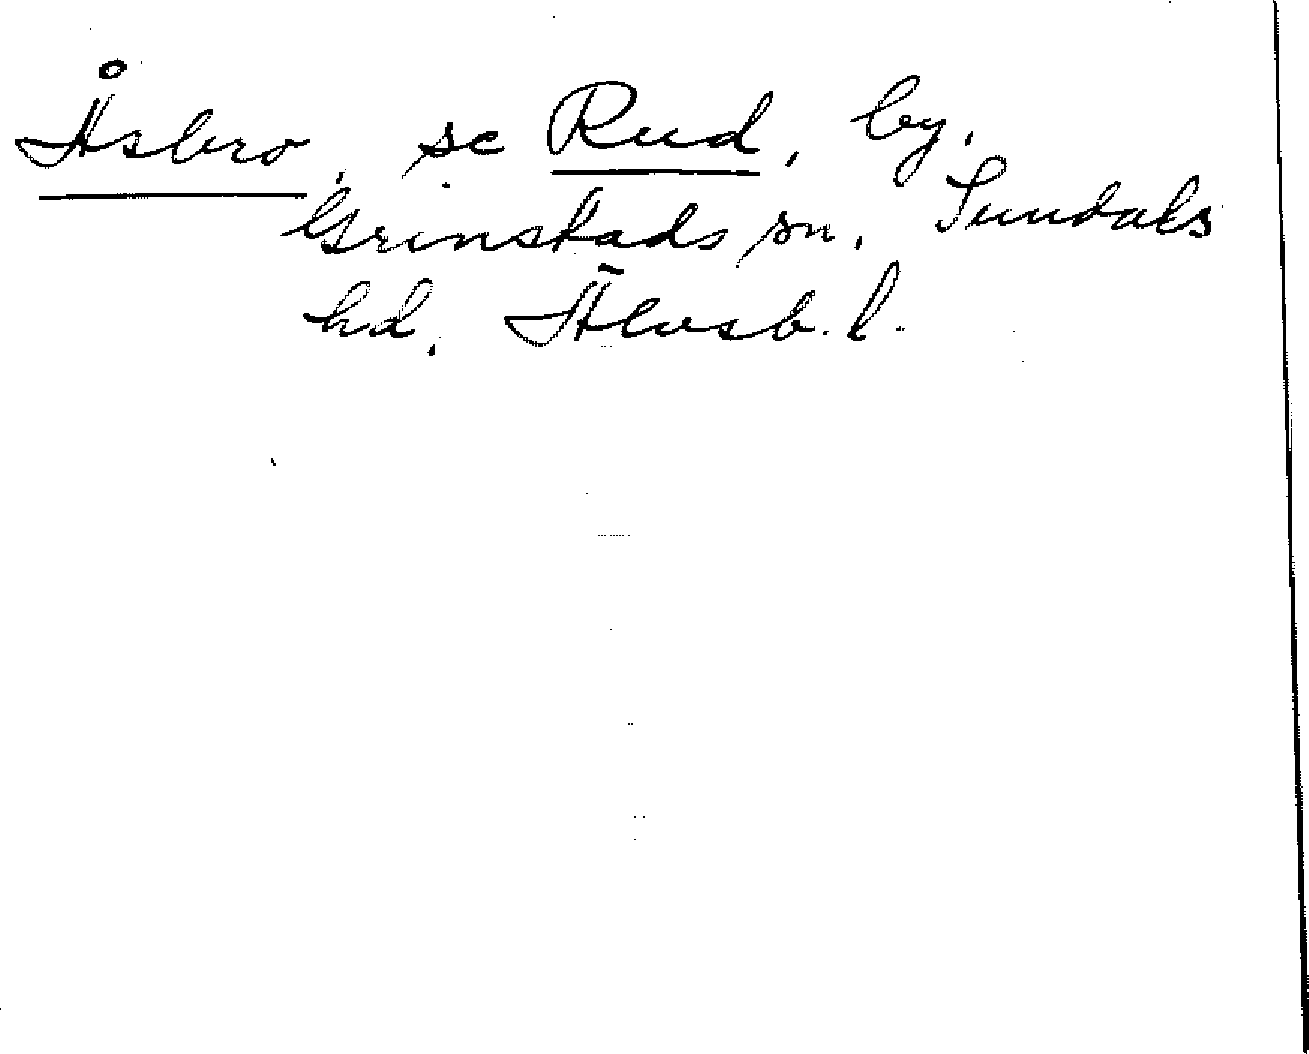 Åsbro, se Rud, by,
Grinstads sn, Sundals
hd, Älvsb. l.